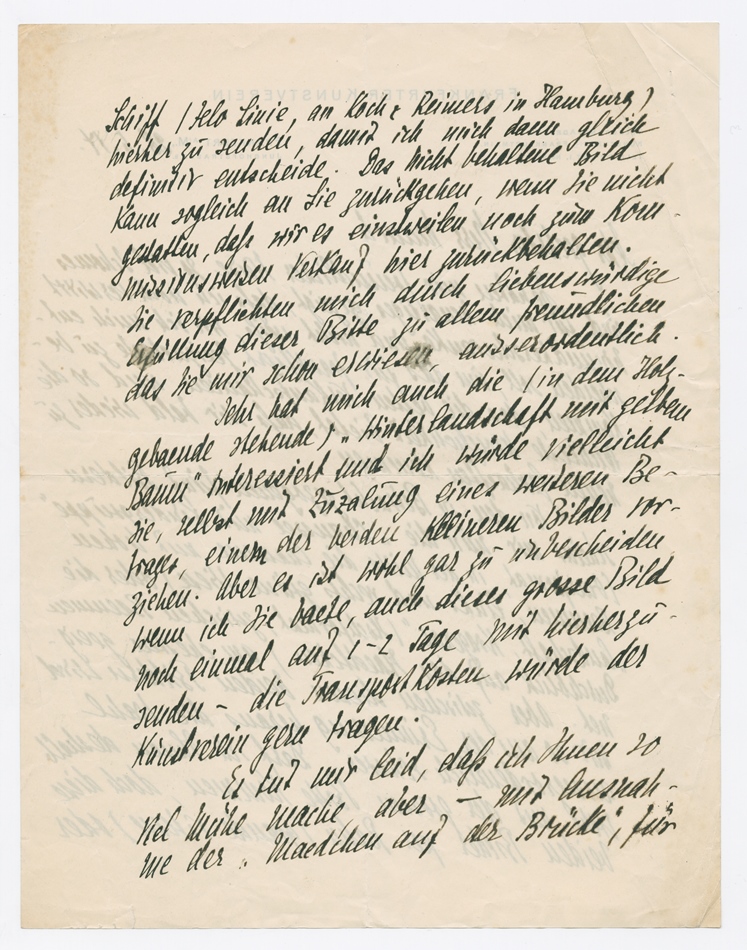 Schiff (Jelo Linie, an Koch & Reimers in Hamburg)
hierher zu senden, damit ich mich dann gleich
definitiv entscheide. Das nicht behaltene Bild
kann sogleich an Sie zurückgehen, wenn Sie nicht
gestatten, daß wir es einstweilen noch zum Kom-
missionsweisen Verkauf hier zurückbehalten.
Sie verpflichten mich durch liebenswürdige
Erfüllung dieser Bitte zu allem freundlichen
das Sie mir schon erwiesen, ausserordentlich.
Sehr hat mich auch die (in dem Holz-
gebaeude stehende) „Winterlandschaft mit gelbem
Baum" interessiert und ich würde vielleicht
Sie, selbst mit Zuzalung eines weiteren Be-
trages, einem der beiden kleineren Bilder vor-
ziehen. Aber es ist wohl gar zu unbescheiden
wenn ich Sie baete, auch dieses grosse Bild
noch einmal auf 1-2 Tage mit hierherzu-
senden – die Transportkosten würde der
Kunstverein gern tragen.
Es tut mir leid, daß ich Ihnen so
viel Mühe mache, aber – mit Ausnah-
me der „Maedchen auf der Brücke", für
FRANKFURTER KUNSTVEREIN